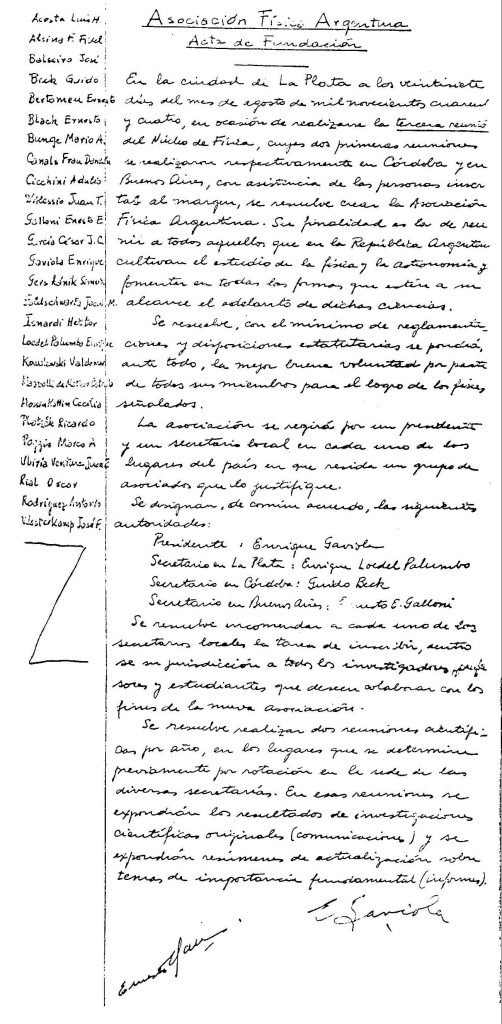 Asociación Física Argentina
Acta de Fundación
Acosta Luis H.
Alsina F. Fidel
Balseiro José
Beck Guido
Bertomeu Ernesto
Black Ernesto
Bunge Mario A.
Canals Frau Damián
Cicchini Adulio
D'Alessio Juan T.
Galloni Ernesto E
García César J. C.
Gaviola Enrique
Gershánik Simón
Goldschwartz José M.
Isnardi Hector
Loedel Palumbo Enrique
Kowalewski Valdemar
Cecilia
Platzek Ricardo
Poggio Marco A
Juan
Rial Oscar
Rodríguez Antonio
Westerkamp José F.
En la ciudad de La Plata a los veintisiete
días del mes de agosto de mil novecientos cuaren
y cuatro, en ocasión de realizarse la tercera reunió
del Núcleo de Física, cuyas dos primeras reuniones
se realizaron respectivamente en Córdoba y en
Buenos Aires, con asistencia de las personas inscr
tas al margen, se resuelve crear la Asociación
Física Argentina. Su finalidad es la de reu
nir a todos aquellos que en la República Argentin
cultivan el estudio de la física y la astronomía y
fomenten en todas las formas que estén a su
alcance el adelanto de dichas ciencias.
Se resuelve, con el mínimo de reglamenta
ciones y disposiciones estatutarias se pondrá,
ante todo, la mejor buena voluntad por parte
de todos sus miembros para el logro de los fines
señalados.
La asociación se regirá por un presidente
y un secretario local en cada uno de los
lugares del país en que resida un grupo de
asociados que lo justifique.
Se designan, de común acuerdo, las siguientes
autoridades:
Presidente : Enrique Gaviola
Secretario en La Plata : Enrique Loedel Palumbo
Secretario en Córdoba: Guido Beck
Secretario en Buenos Aires: Ernesto E. Galloni
Se resuelve encomendar a cada uno de los
secretarios locales la tarea de inscribir, dentro
de su jurisdicción a todos los investigadores, profe
sores y estudiantes que deseen colaborar con los
fines de la nueva asociación.
Se resuelve realizar dos reuniones científi-
cas por año, en los lugares que se determine
previamente por rotación en la sede de las
diversas secretarías. En esas reuniones se
expondrán los resultados de investigaciones
científicas originales (comunicaciones) y se
expondrán resúmenes de actualización sobre
temas de importancia fundamental (informes).
E. Gaviola
Ernesto Galloni